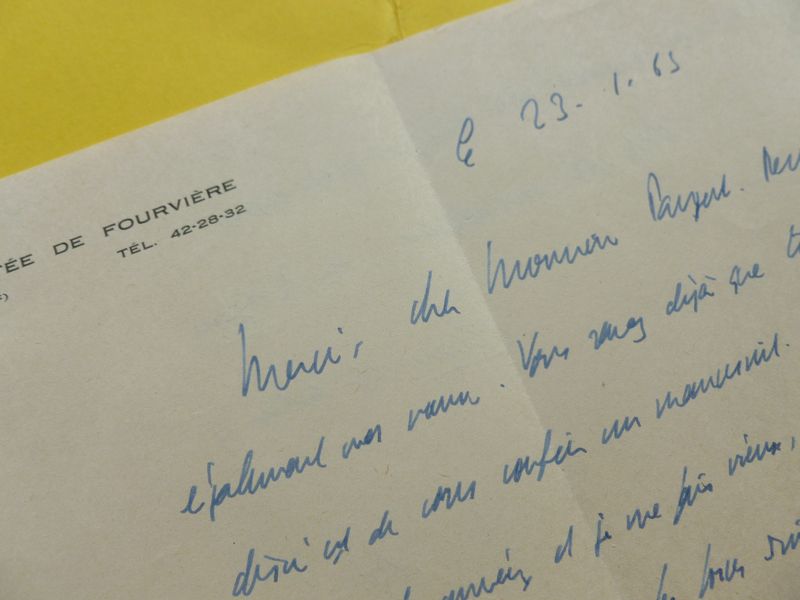 TÉE DE FOURVIÈRE
TÉL. 42-28-32
le 23.1.63
Merci, cher Monsieur
également mes vœux. Vous savez déjà que
désir est de vous confier un manuscrit.
et je me fais vieux,